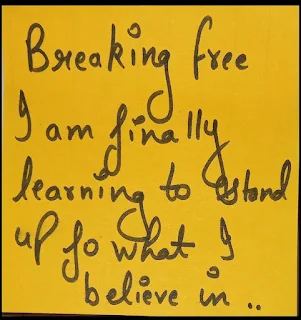 Breaking free
I am finally
learning to stand
up fo what I
believe in ..